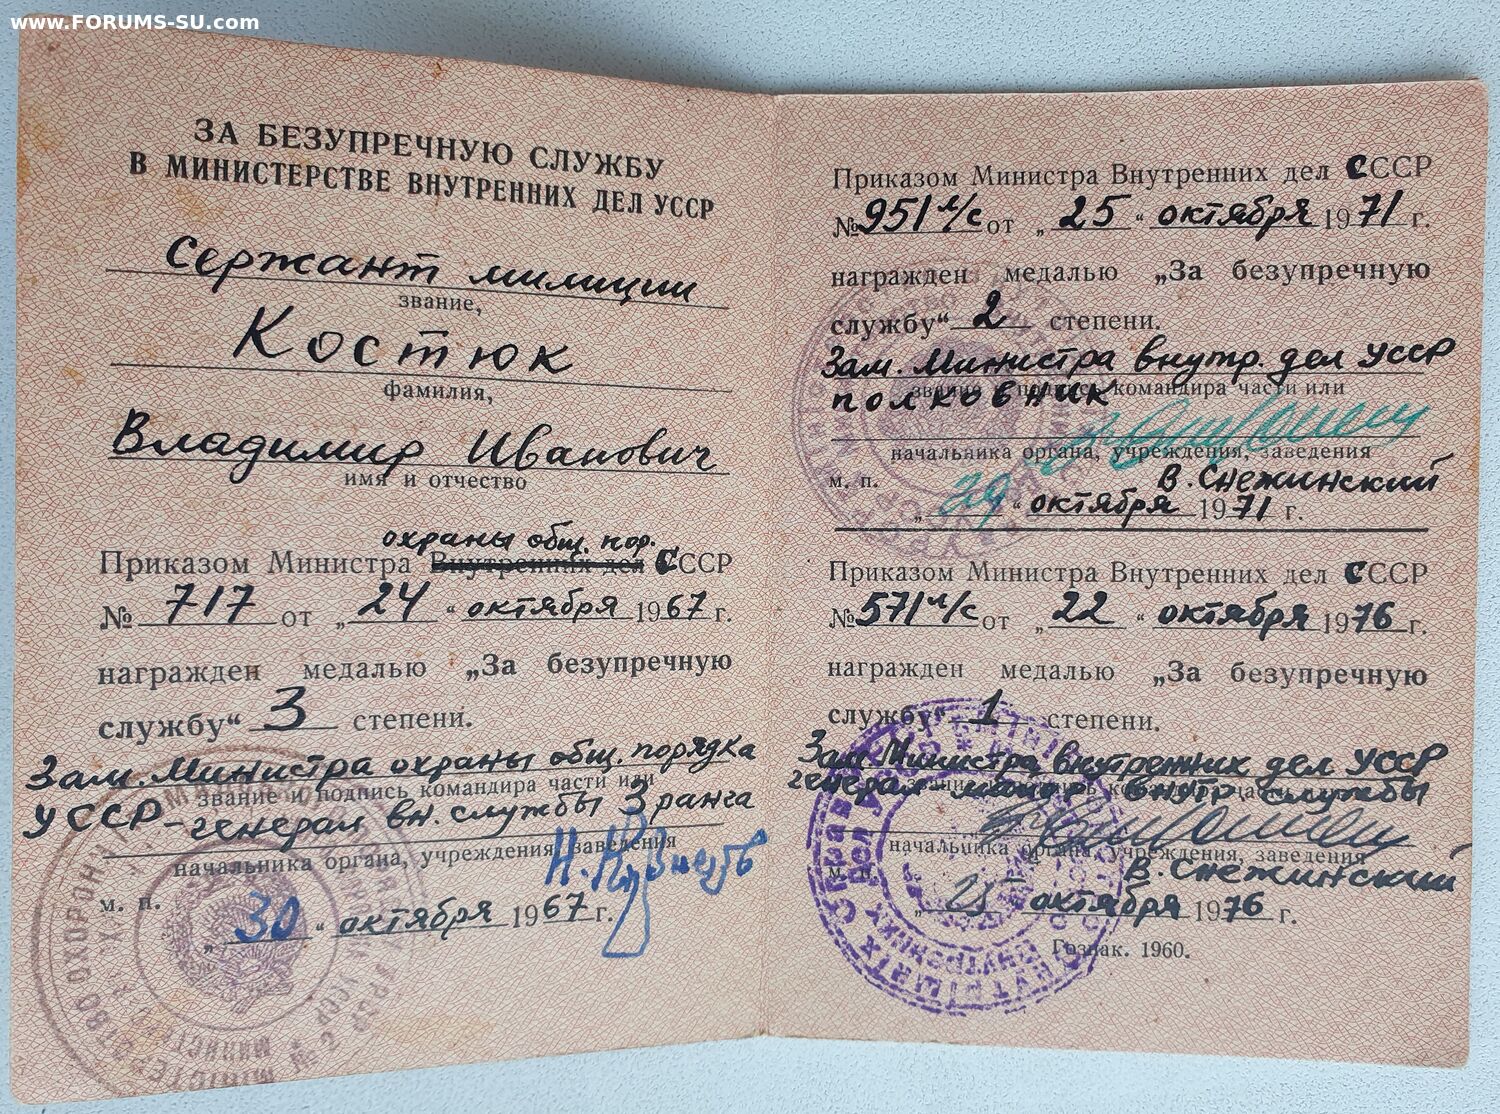 www.FORUMS-SU.com
ЗА БЕЗУПРЕЧНУЮ СЛУЖБУ
В МИНИСТЕРСТВЕ ВНУТРЕННИХ ДЕЛ УССР
Сержант милиции
звание,
Костюк
фамилия,
Владимир Иванович
имя и отчество
охраны общ. пор.
Приказом Министра Внутренних дел СССР
№ 717 от „ 24 “ октября 1967 г.
награжден медалью „За безупречную
службу“ 3 степени.
Зам. Министра охраны общ. порядка
звание и подпись командира части или
УССР - генерал вн. службы 3 ранга
начальника органа, учреждения, заведения
м. п.
„ 30 “ октября 1967 г.
Приказом Министра Внутренних дел СССР
№ 951 л/с от „ 25 “ октября 1971 г.
награжден медалью „За безупречную
службу“ 2 степени.
Зам. Министра внутр. дел УССР
звание и подпись командира части или
полковник
начальника органа, учреждения, заведения
м. п. В. Снежинский
„ 29 “ октября 1971 г.
Приказом Министра Внутренних дел СССР
№ 571 л/с от „ 22 “ октября 1976 г.
награжден медалью „За безупречную
службу“ 1 степени.
Зам. Министра внутренних дел УССР
генерал-майор внутр службы
начальника органа, учреждения, заведения
м. п. В. Снежинский
„ 25 “ октября 1976 г.
Гознак. 1960.